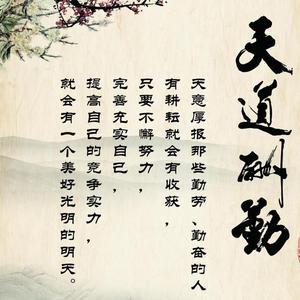 天道酬勤
天意厚报那些勤劳、勤奋的人
有耕耘就会有收获，
只要不懈努力，
完善充实自己，
提高自己的竞争实力，
就会有一个美好光明的明天。